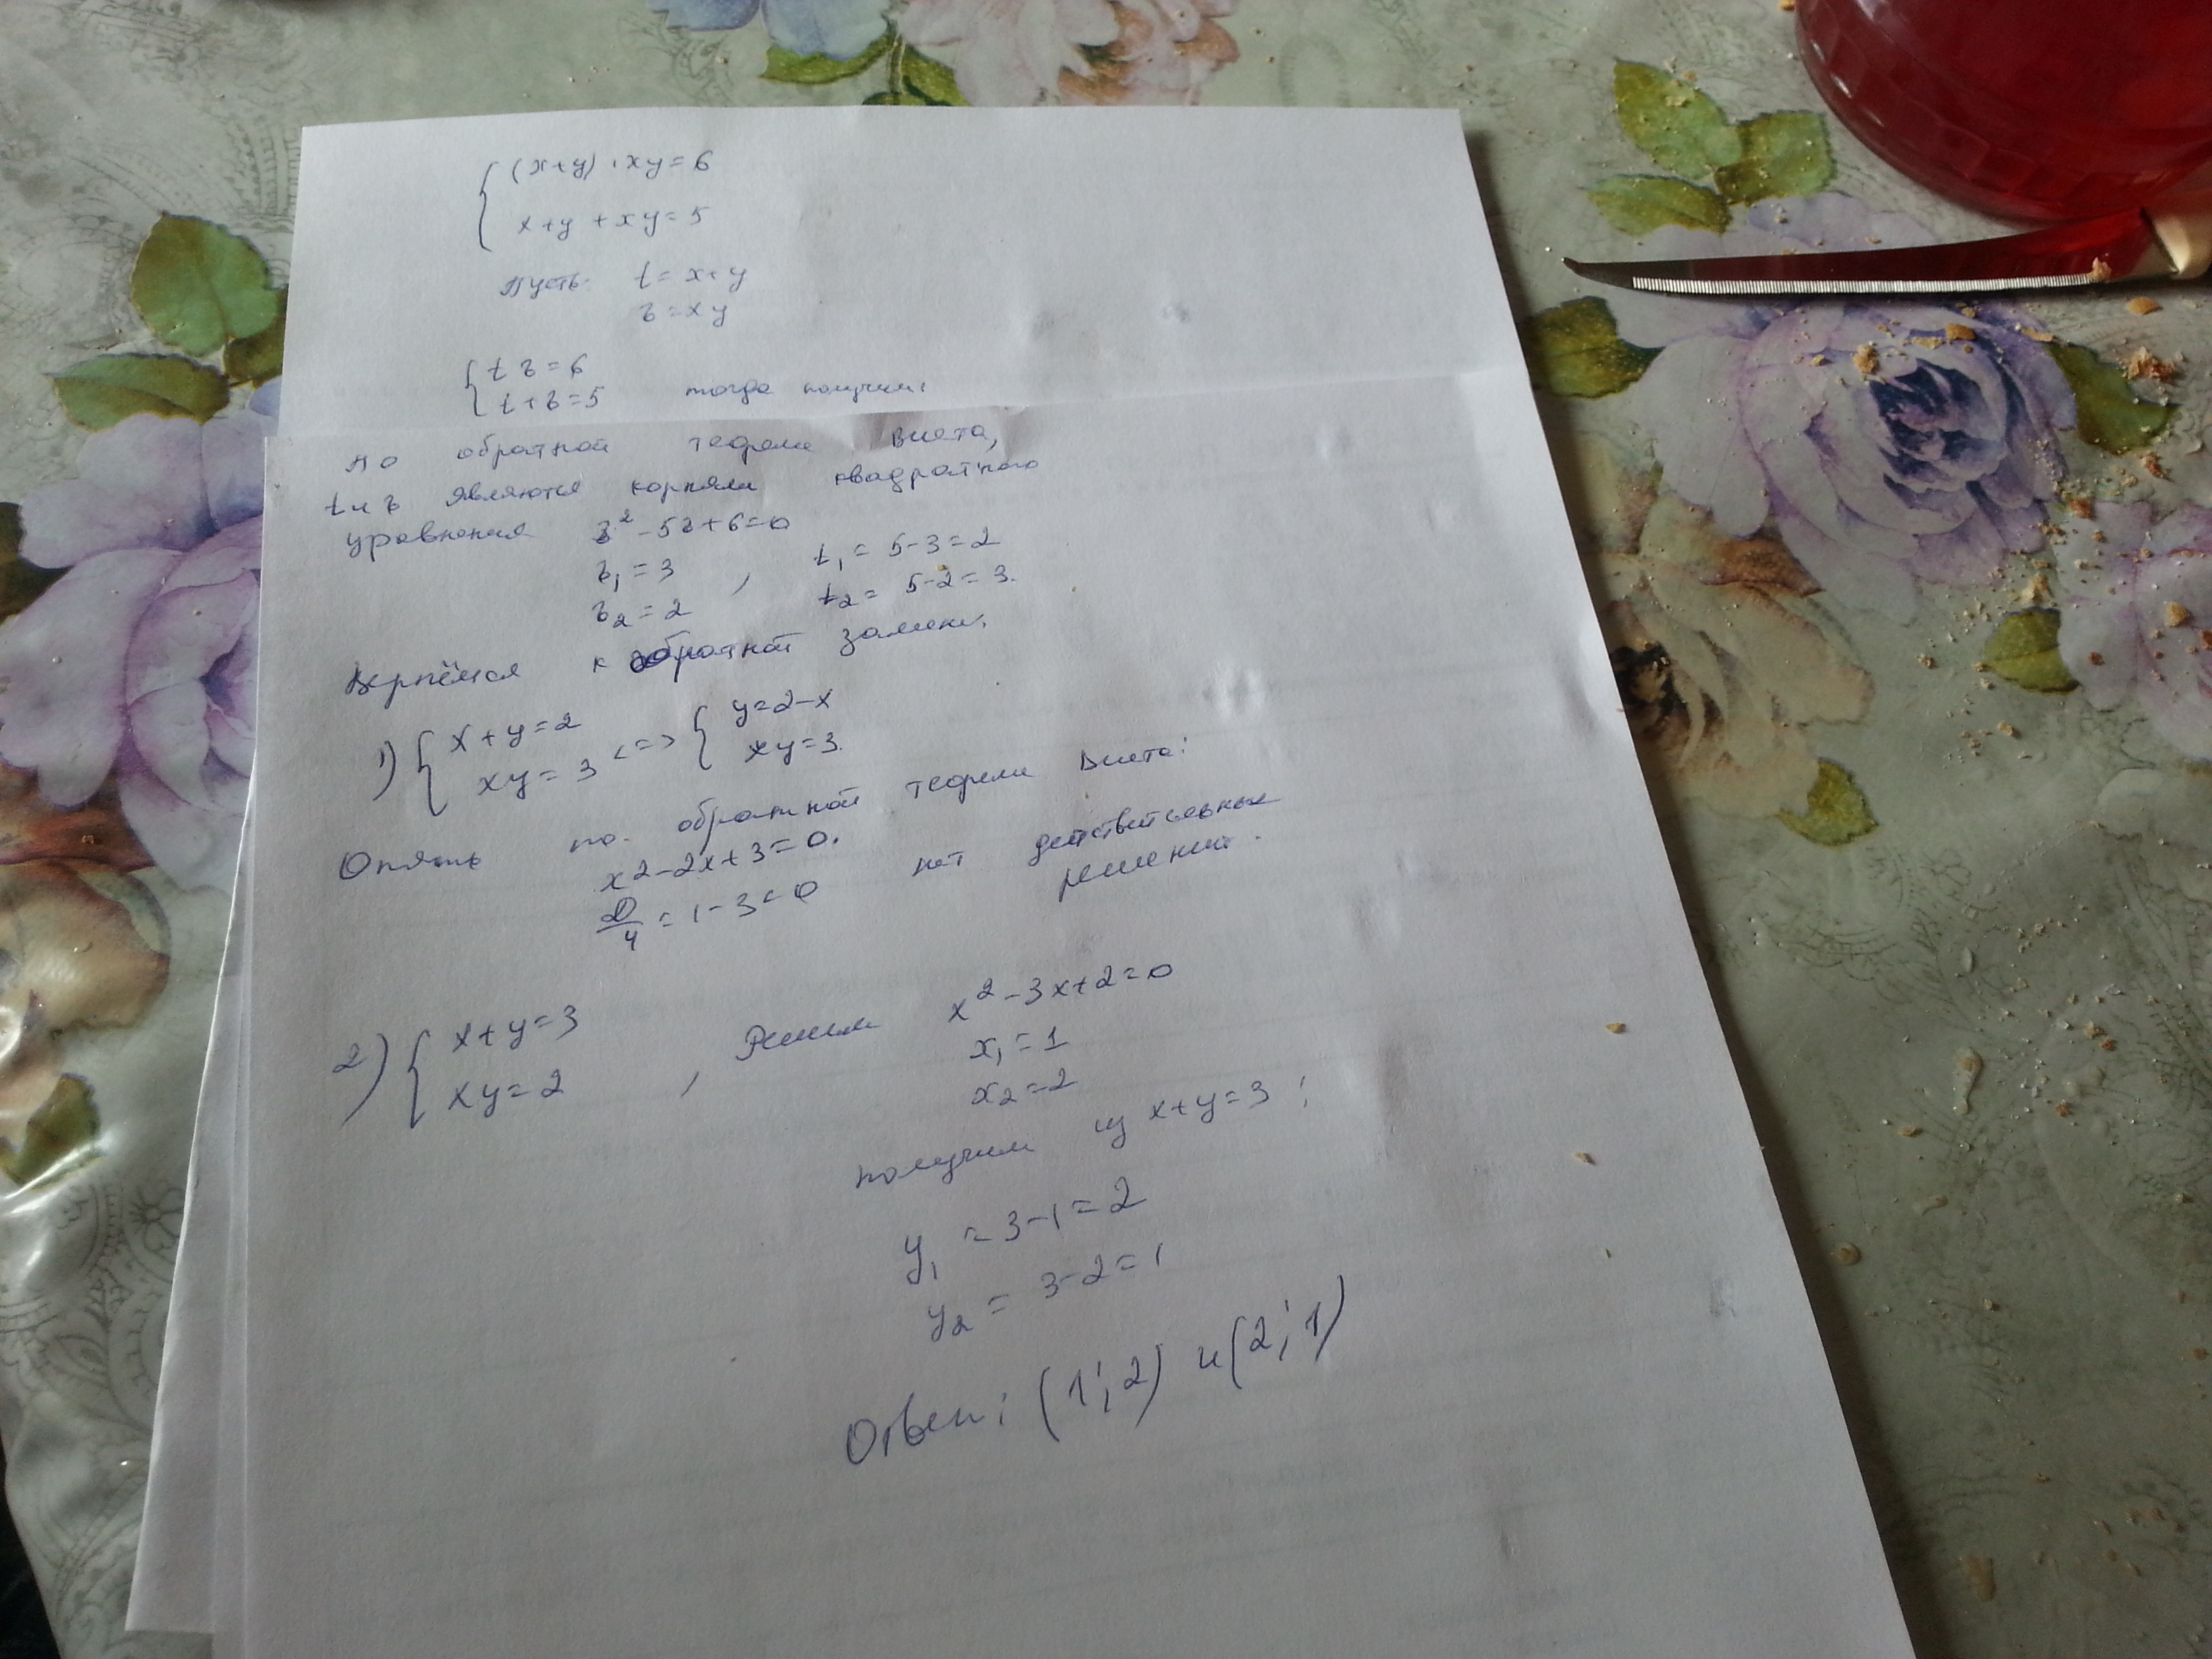 (x+y)·xy=6
x+y+xy=5
Пусть: t=x+y
z=xy
tz=6
t+z=5 тогда получим:
по обратной теореме Виета,
t и z являются корнями квадратного
уравнения z²-5z+6=0
z₁=3, t₁=5-3=2
z₂=2 t₂=5-2=3.
Вернёмся к обратной замене.
1) { x+y=2 <=> { y=2-x
xy=3 xy=3.
Опять по обратной теореме Виета:
x²-2x+3=0.
D/4=1-3<0 нет действительных
решений.
2) { x+y=3
xy=2, Решим x²-3x+2=0
x₁=1
x₂=2
получим из x+y=3:
y₁=3-1=2
y₂=3-2=1
Ответ: (1;2) и (2;1)